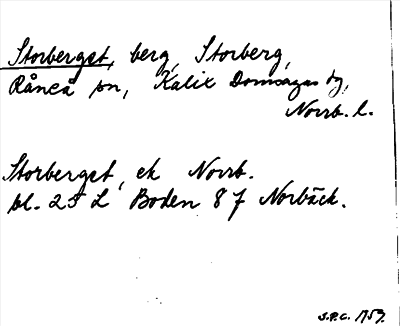 Storberget, berg, Storberg,
Råneå sn, Kalix Domsagas tg,
Norrb. l.
Storberget, ek Norrb.
bl. 25 L Boden 8 f Norbäck.
S.P.C. 1959.